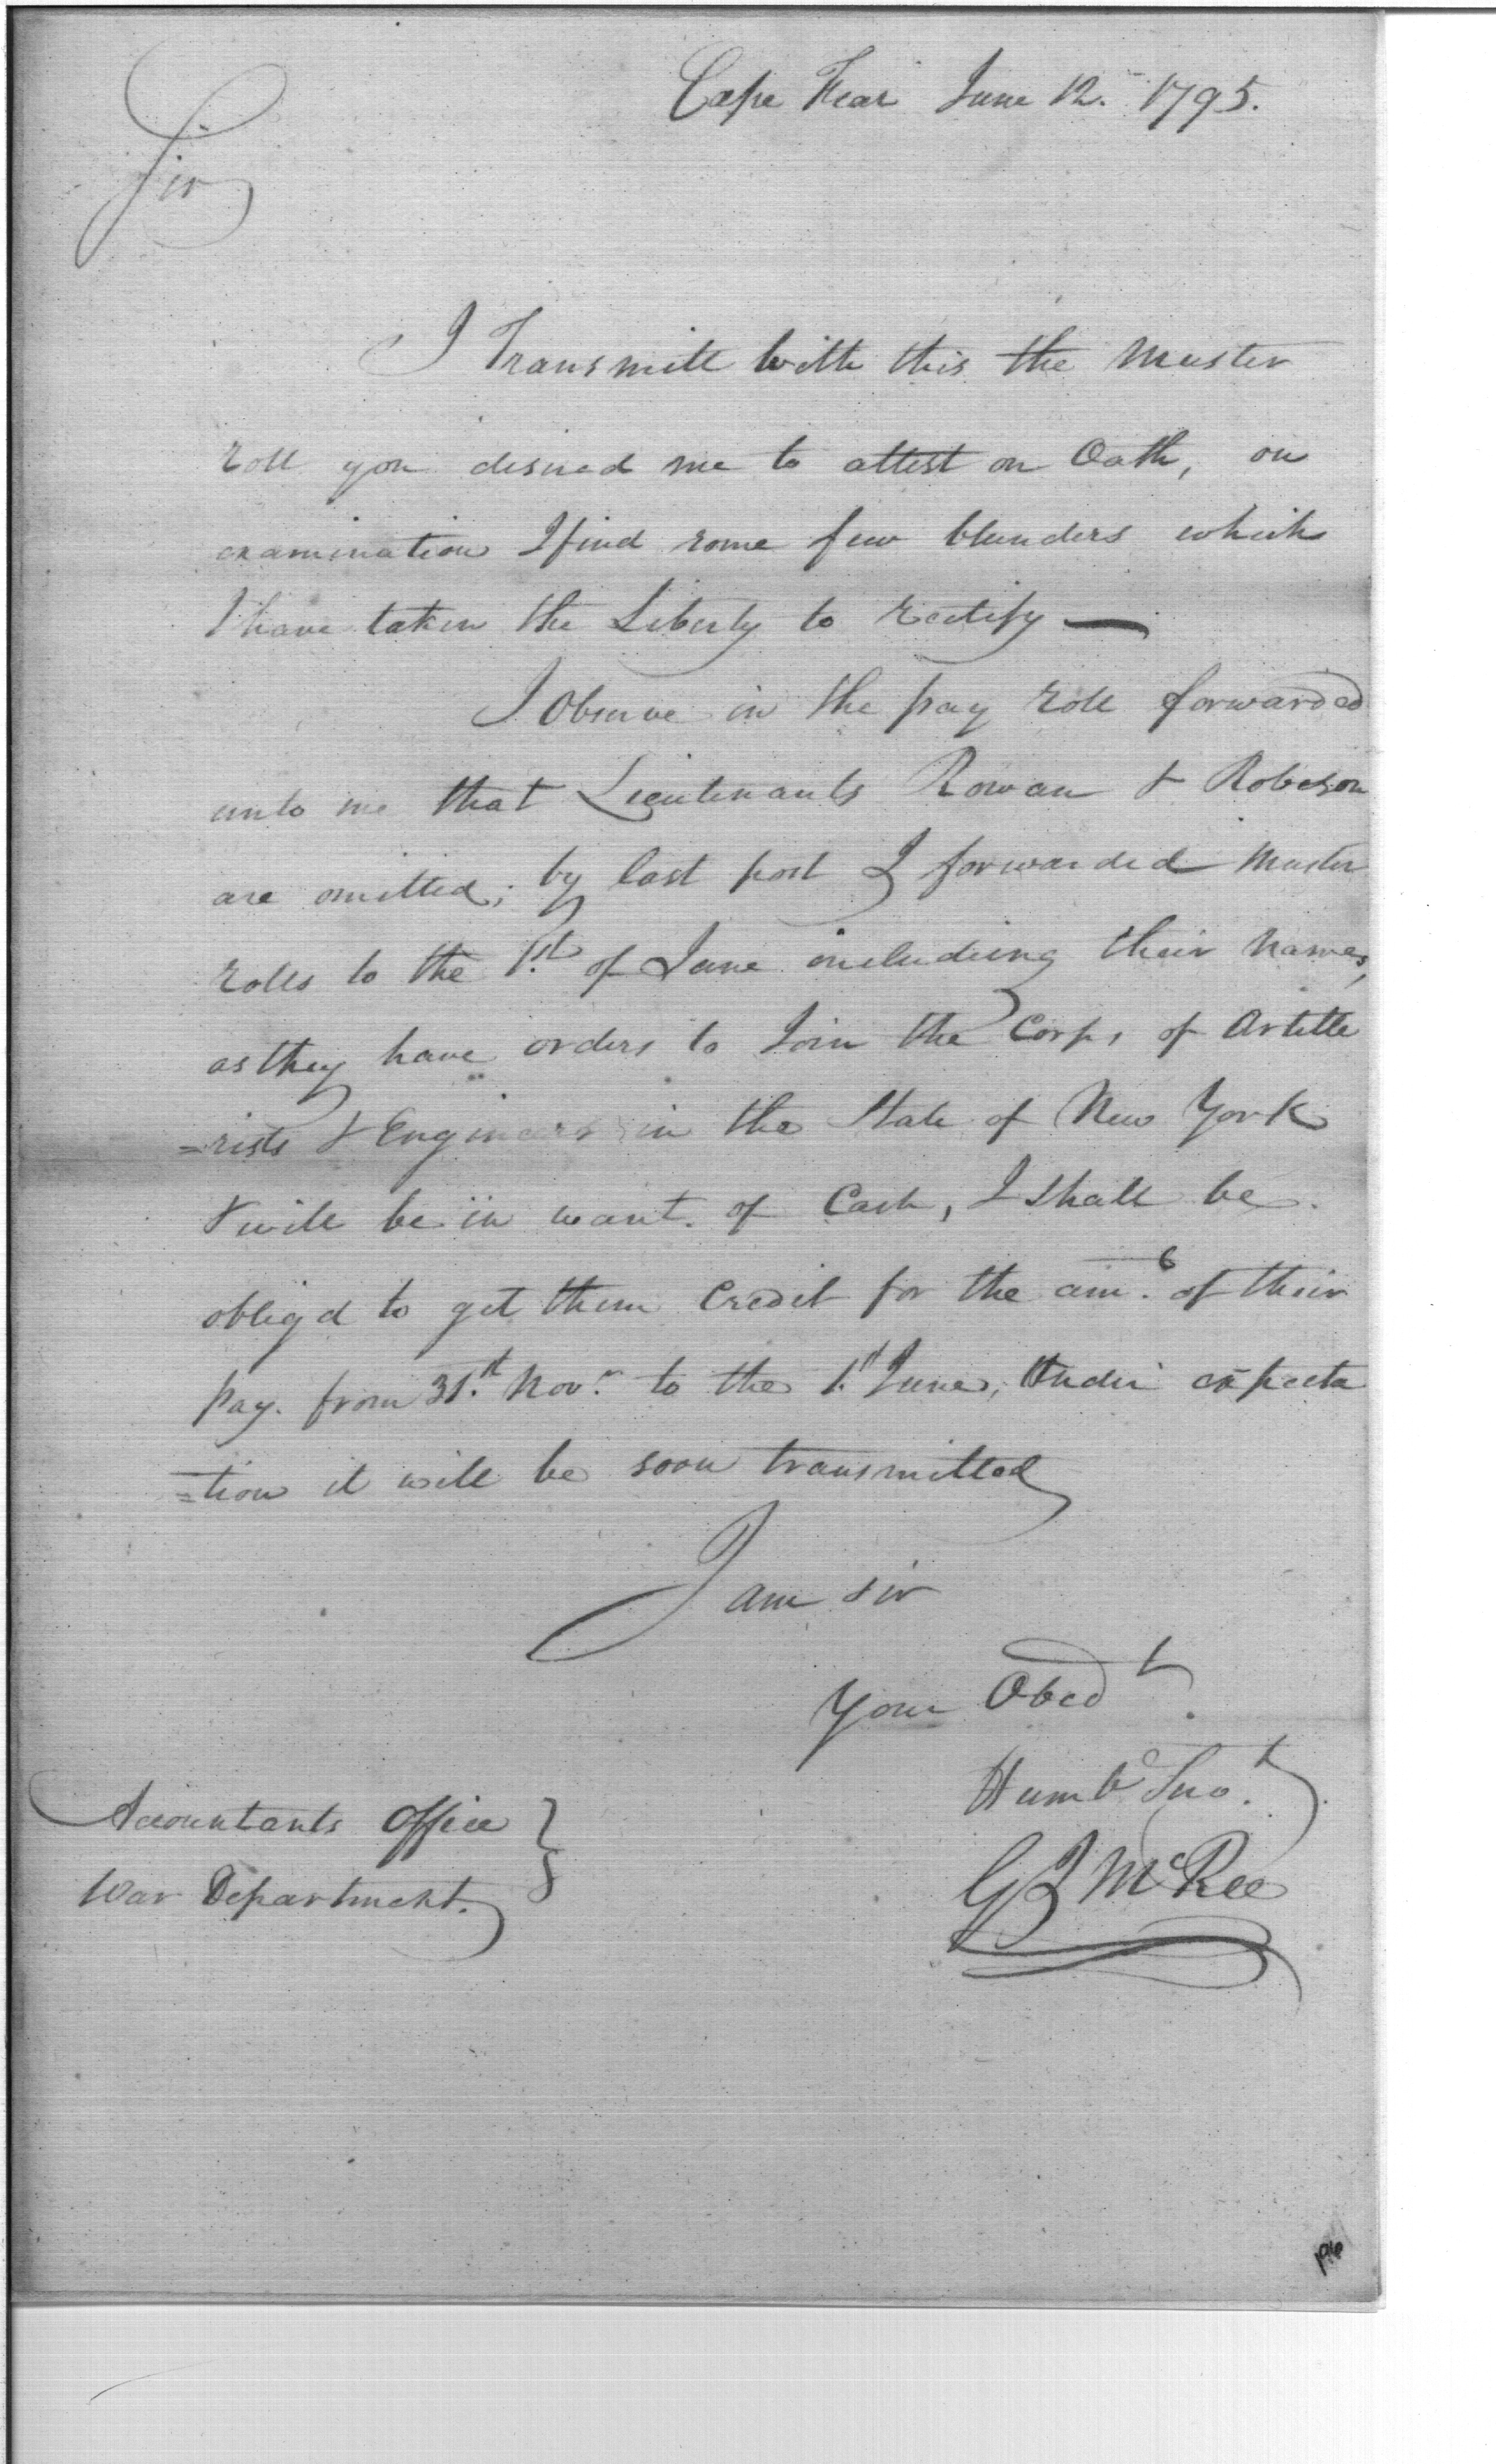 Cape Fear June 12. 1795.
Sir
I Transmitt with this the Muster
roll you desired me to attest on Oath, on
examination I find some few blunders which
I have taken the Liberty to rectify —
I Observe in the pay roll forwarded
unto me that Lieutenants Rowan & Robeson
are omitted; by last post I forwarded Muster
rolls to the 1st. of June including their Names,
as they have orders to Join the Corps of Artille
=rists & Engineers in the State of New York
& will be in want of Cash, I shall be
oblig'd to get them Credit for the amt. of their
pay. from 31st. Novr. to the 1st June, Under expecta
=tion it will be soon transmitted
I am sir
Your Obedt.
Humbe Servt.
G J McRee
Accountants Office }
War Department.